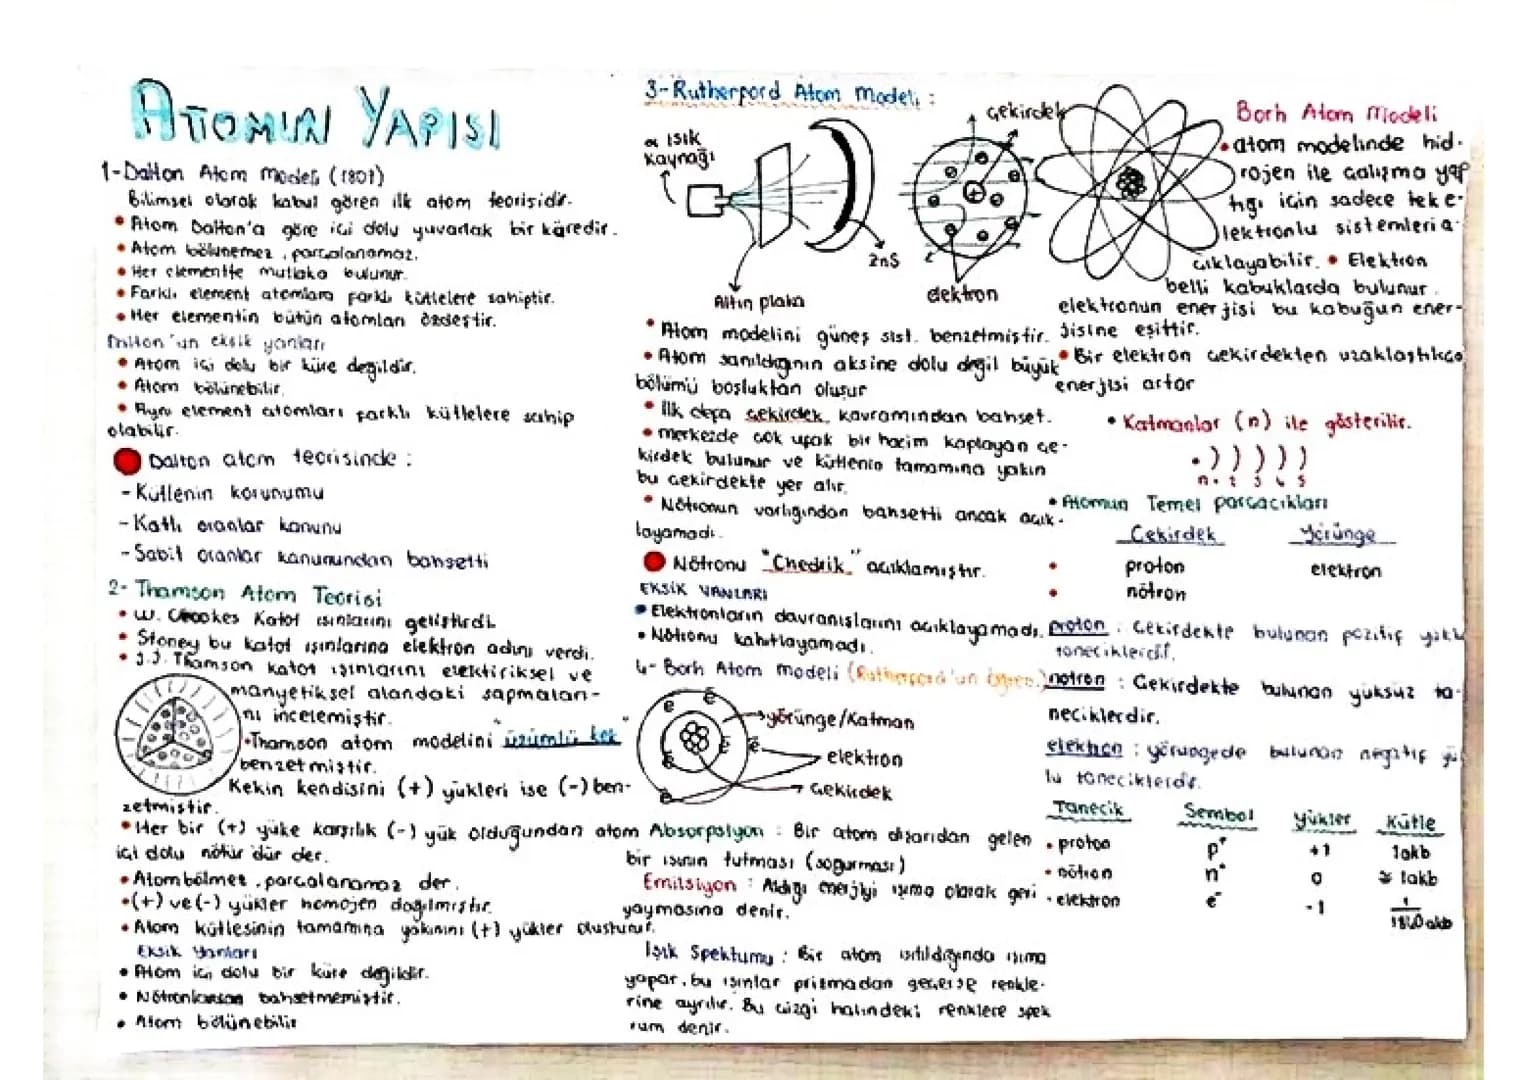 ATOMUN YAPISI
1-Dalton Atom Modeli (1801)
Bilimsel olarak kabul gören ilk atom teorisidir.
• Atom Dalton'a göre içi dolu yuvarlak bir küredir.
• Atom bölünemez, parçalanamaz.
• Her elementte mutlaka bulunur.
• Farklı element atomları farklı kütlelere sahiptir.
• Her elementin bütün atomları özdeştir.
Dalton'un eksik yanları
• Atom içi dolu bir küre değildir.
• Atom bölünebilir.
• Aynı element atomları farklı kütlelere sahip
olabilir.
Dalton atom teorisinde :
- Kütlenin korunumu
- Katlı oranlar kanunu
- Sabit oranlar kanunundan bahsetti
2- Thamson Atom Teorisi
• W. Crookes Katot ışınlarını geliştirdi.
• Stoney bu katot ışınlarına elektron adını verdi.
• J.J. Thamson katot ışınlarını elektiriksel ve
manyetiksel alandaki sapmaları-
nı incelemiştir.
• Thamson atom modelini "üzümlü kek"
benzetmiştir.
Kekin kendisini (+) yükleri ise (-) ben-
zetmiştir.
• Her bir (+) yüke karşılık (-) yük olduğundan atom
içi dolu nötür dür der.
• Atom bölmez, parçalanamaz der.
• (+) ve (-) yükler homojen dağılmıştır.
• Atom kütlesinin tamamına yakınını (+) yükler oluşturur.
Eksik Yanları
• Atom içi dolu bir küre değildir.
• Nötronlardan bahsetmemiştir.
• Atom bölünebilir
3-Rutherford Atom Modeli :
α ışık
Kaynağı
Altın plaka
ZnS
çekirdek
elektron
• Atom modelini güneş sist. benzetmiştir.
• Atom sanıldığının aksine dolu değil büyük
bölümü boşluktan oluşur
• İlk defa çekirdek kavramından bahset.
• merkezde çok ufak bir hacim kaplayan çe-
kirdek bulunur ve kütlenin tamamına yakın
bu çekirdekte yer alır.
• Nötronun varlığından bahsetti ancak açık-
layamadı.
Nötronu "Chedrik" açıklamıştır.
EKSİK YANLARI
• Elektronların davranışlarını açıklayamadı.
• Nötronu kanıtlayamadı.
4- Borh Atom Modeli (Rutherford'un öğren.)
yörünge/Katman
elektron
Çekirdek
Absorpsiyon : Bir atom dışarıdan gelen
bir ışının tutması (soğurması)
Emilsiyon : Aldığı enerjiyi ışıma olarak geri
yaymasına denir.
Işık Spektumu : Bir atom ısıtıldığında ışıma
yapar, bu ışınlar prizmadan geçerse renkle-
rine ayrılır. Bu çizgi halindeki renklere spek
rum denir.
Borh Atom Modeli
• atom modelinde hid-
rojen ile çalışma yap
tığı için sadece tek e-
lektronlu sistemleri a-
çıklayabilir. • Elektron
belli kabuklarda bulunur.
elektronun enerjisi bu kabuğun ener-
jisine eşittir.
• Bir elektron çekirdekten uzaklaştıkça
enerjisi artar
• Katmanlar (n) ile gösterilir.
• ) ) ) ) )
• Atomun Temel parçacıkları
Çekirdek Yörünge
• proton elektron
• nötron
proton : Çekirdekte bulunan pozitif yükl
taneciklerdir.
nötron : Çekirdekte bulunan yüksüz ta-
neciklerdir.
elektron : yörüngede bulunan negatif yü
lü taneciklerdir.
Tanecik Sembol Yükler Kütle
• proton p⁺ +1 1akb
• nötron n° 0 ≅ 1akb
• elektron e⁻ -1 1/1840 akb